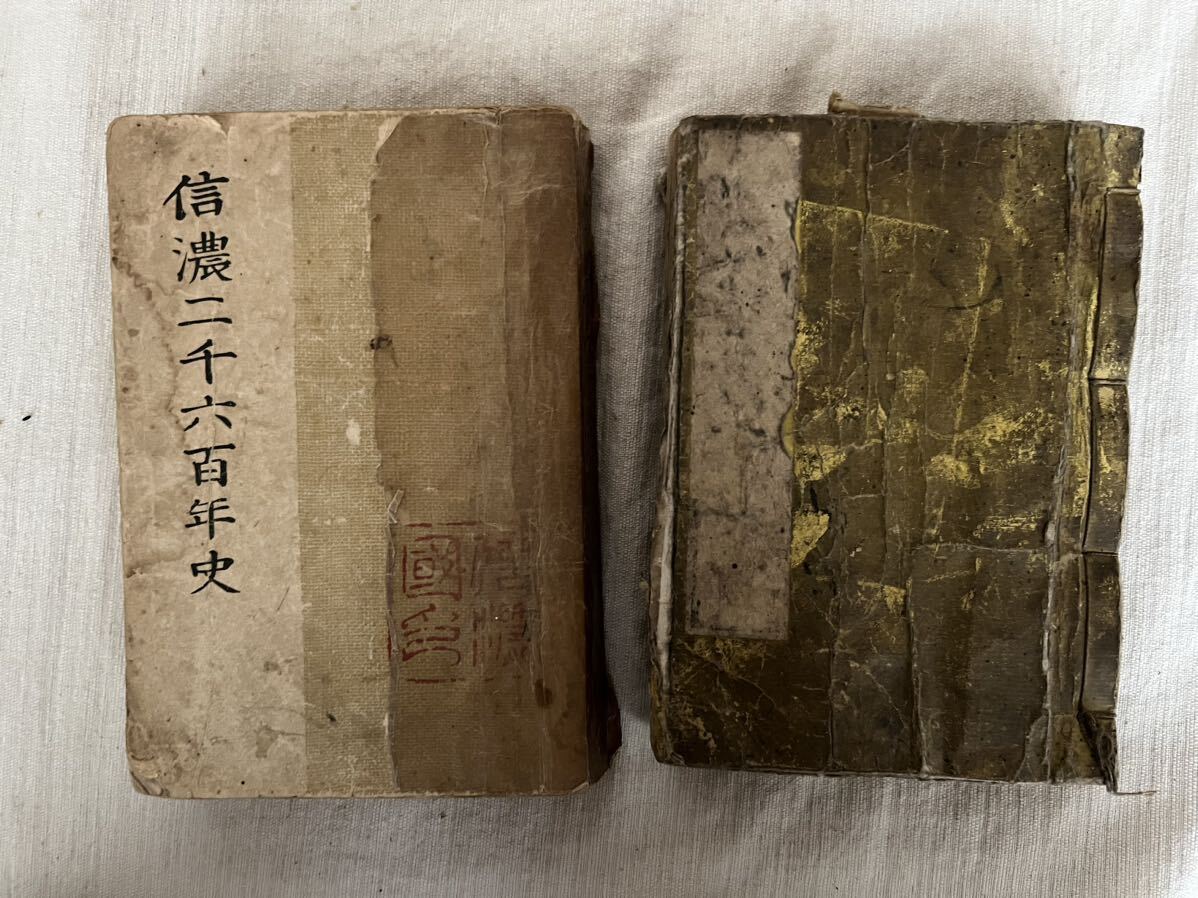 信濃二千六百年史
信濃
國印